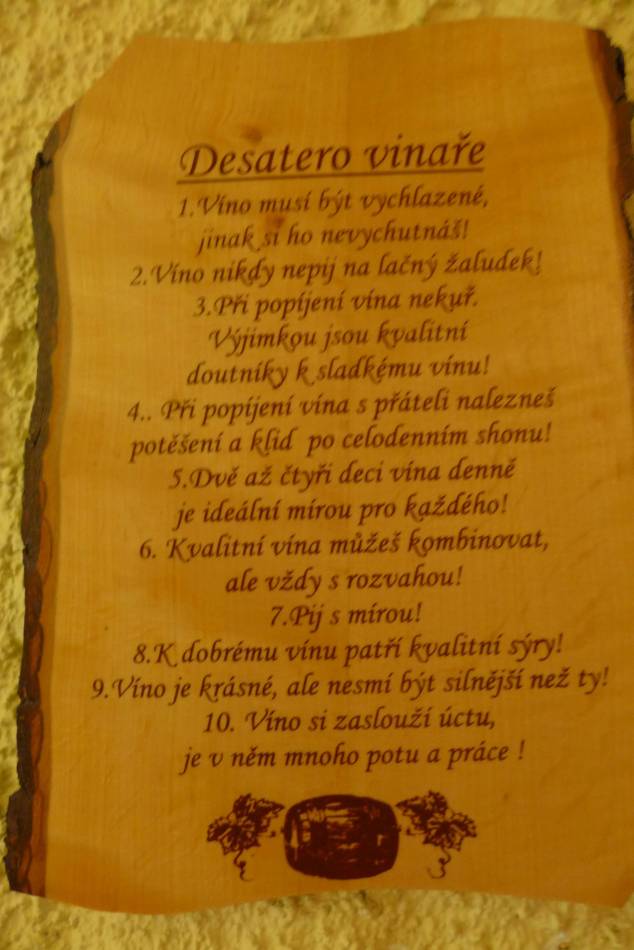 Desatero vinaře
1.Víno musí být vychlazené,
jinak si ho nevychutnáš!
2.Víno nikdy nepij na lačný žaludek!
3.Při popíjení vína nekuř.
Výjimkou jsou kvalitní
doutníky k sladkému vínu!
4.. Při popíjení vína s přáteli nalezneš
potěšení a klid po celodenním shonu!
5.Dvě až čtyři deci vína denně
je ideální mírou pro každého!
6. Kvalitní vína můžeš kombinovat,
ale vždy s rozvahou!
7.Pij s mírou!
8.K dobrému vínu patří kvalitní sýry!
9.Víno je krásné, ale nesmí být silnější než ty!
10. Víno si zaslouží úctu,
je v něm mnoho potu a práce !